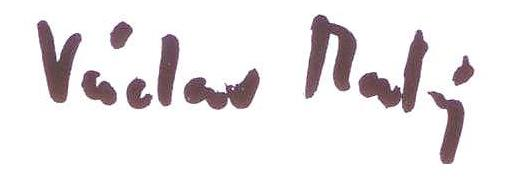 Václav Malý